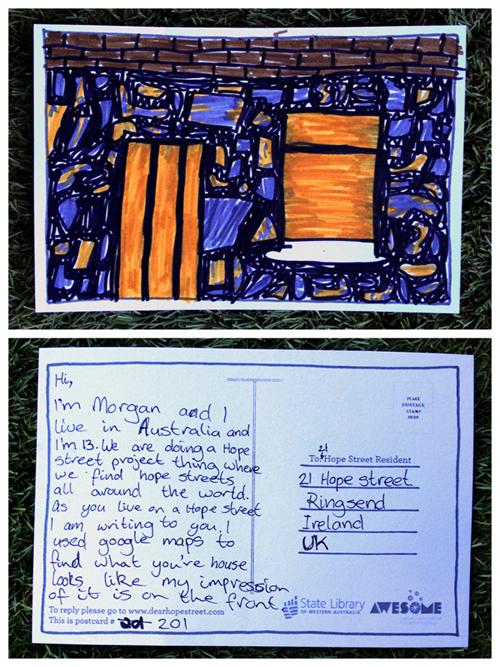 Hi,
I'm Morgan and I
live in Australia and
I'm 13. We are doing a Hope
street project thing where
we find hope streets
all around the world.
As you live on a Hope street
I am writing to you. I
used google maps to
find what you're house
looks like my impression
of it is on the front
To reply please go to www.dearhopestreet.com
This is postcard # 201
PLACE
POSTAGE
STAMP
HERE
21
To: Hope Street Resident
21 Hope street.
Ringsend
Ireland
UK
State Library
OF WESTERN AUSTRALIA
AWESOME